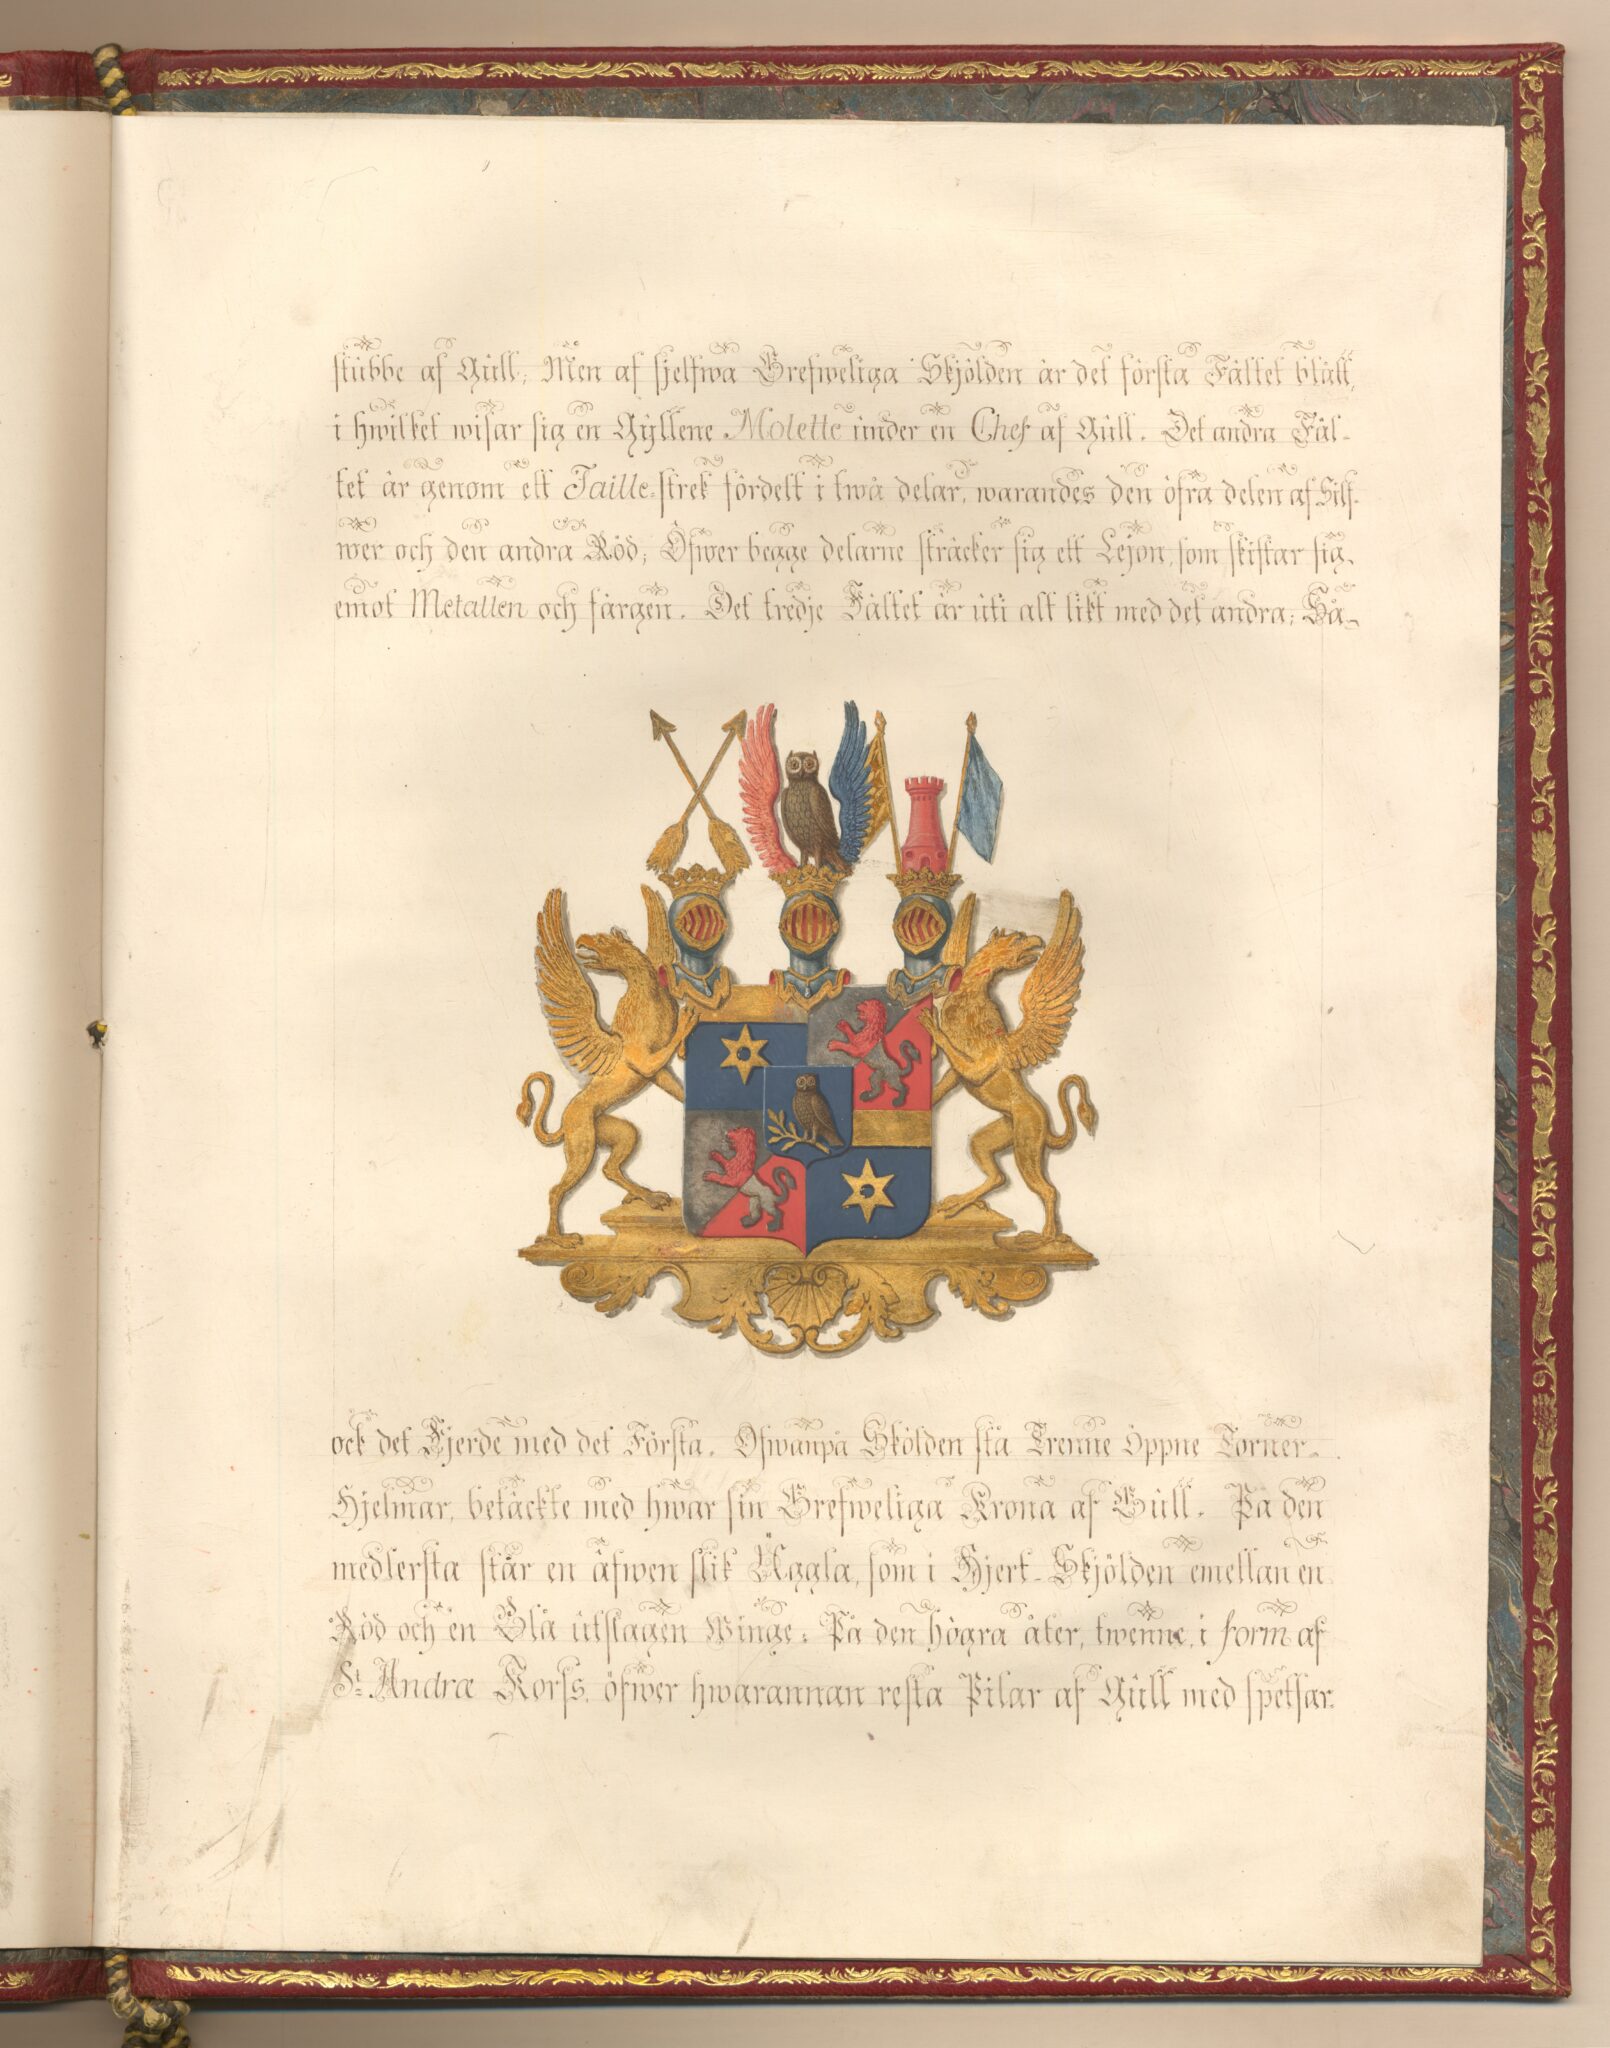 stubbe af Gull; Men af sjelfwa Grefweliga Skjölden är det första Fältet blått,
i hwilket wisar sig en Gyllene Molette under en Chef af Gull. Det andra Fäl-
tet är genom ett Taille-strek fördelt i twå delar, warandes den öfra delen af Silf-
wer och den andra Röd; Öfwer begge delarne sträcker sig ett Lejon, som skiftar sig
emot Metallen och färgen. Det tredje Fältet är uti alt likt med det andra; Så-
ock det Fjerde med det Första. Ofwanpå Skölden stå Trenne öppne Torner-
Hjelmar, betäckte med hwar sin Grefweliga Krona af Gull. På den
medlersta står en äfwen slik Uggla, som i Hjert-Skjölden emellan en
Röd och en Blå utslagen Winge; På den högra åter, twenne, i form af
St. Andræ Korss, öfwer hwarannan resta Pilar af Gull med spetsar-